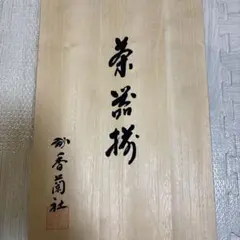 茶器揃
香蘭社